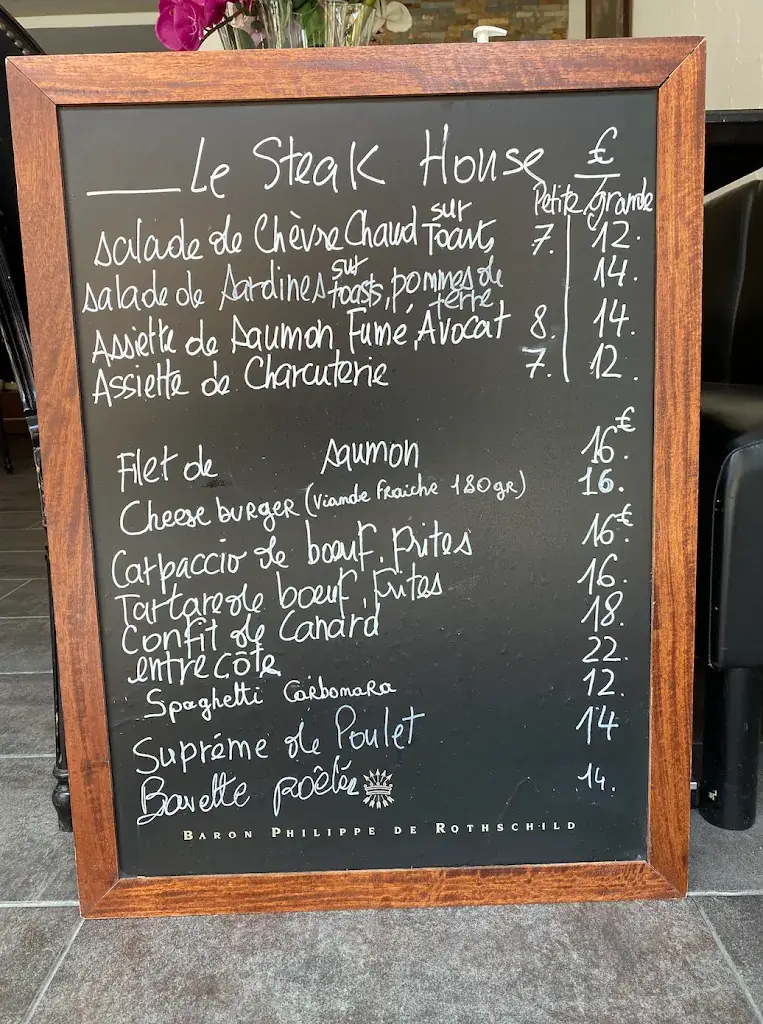 Le Steak House €
Petite grande
Salade de Chèvre Chaud sur Toast, 7. 12.
Salade de Sardines sur toasts, pommes de terre 14.
Assiette de Saumon Fumé, Avocat 8. 14.
Assiette de Charcuterie 7. 12.
Filet de Saumon 16€.
Cheese burger (Viande Fraiche 180gr) 16.
Carpaccio de boeuf, frites 16€.
Tartare de boeuf, Frites 16.
Confit de Canard 18.
entrecôte 22.
Spaghetti Carbonara 12.
Suprême de Poulet 14
Bavette poêlée 14.
BARON PHILIPPE DE ROTHSCHILD